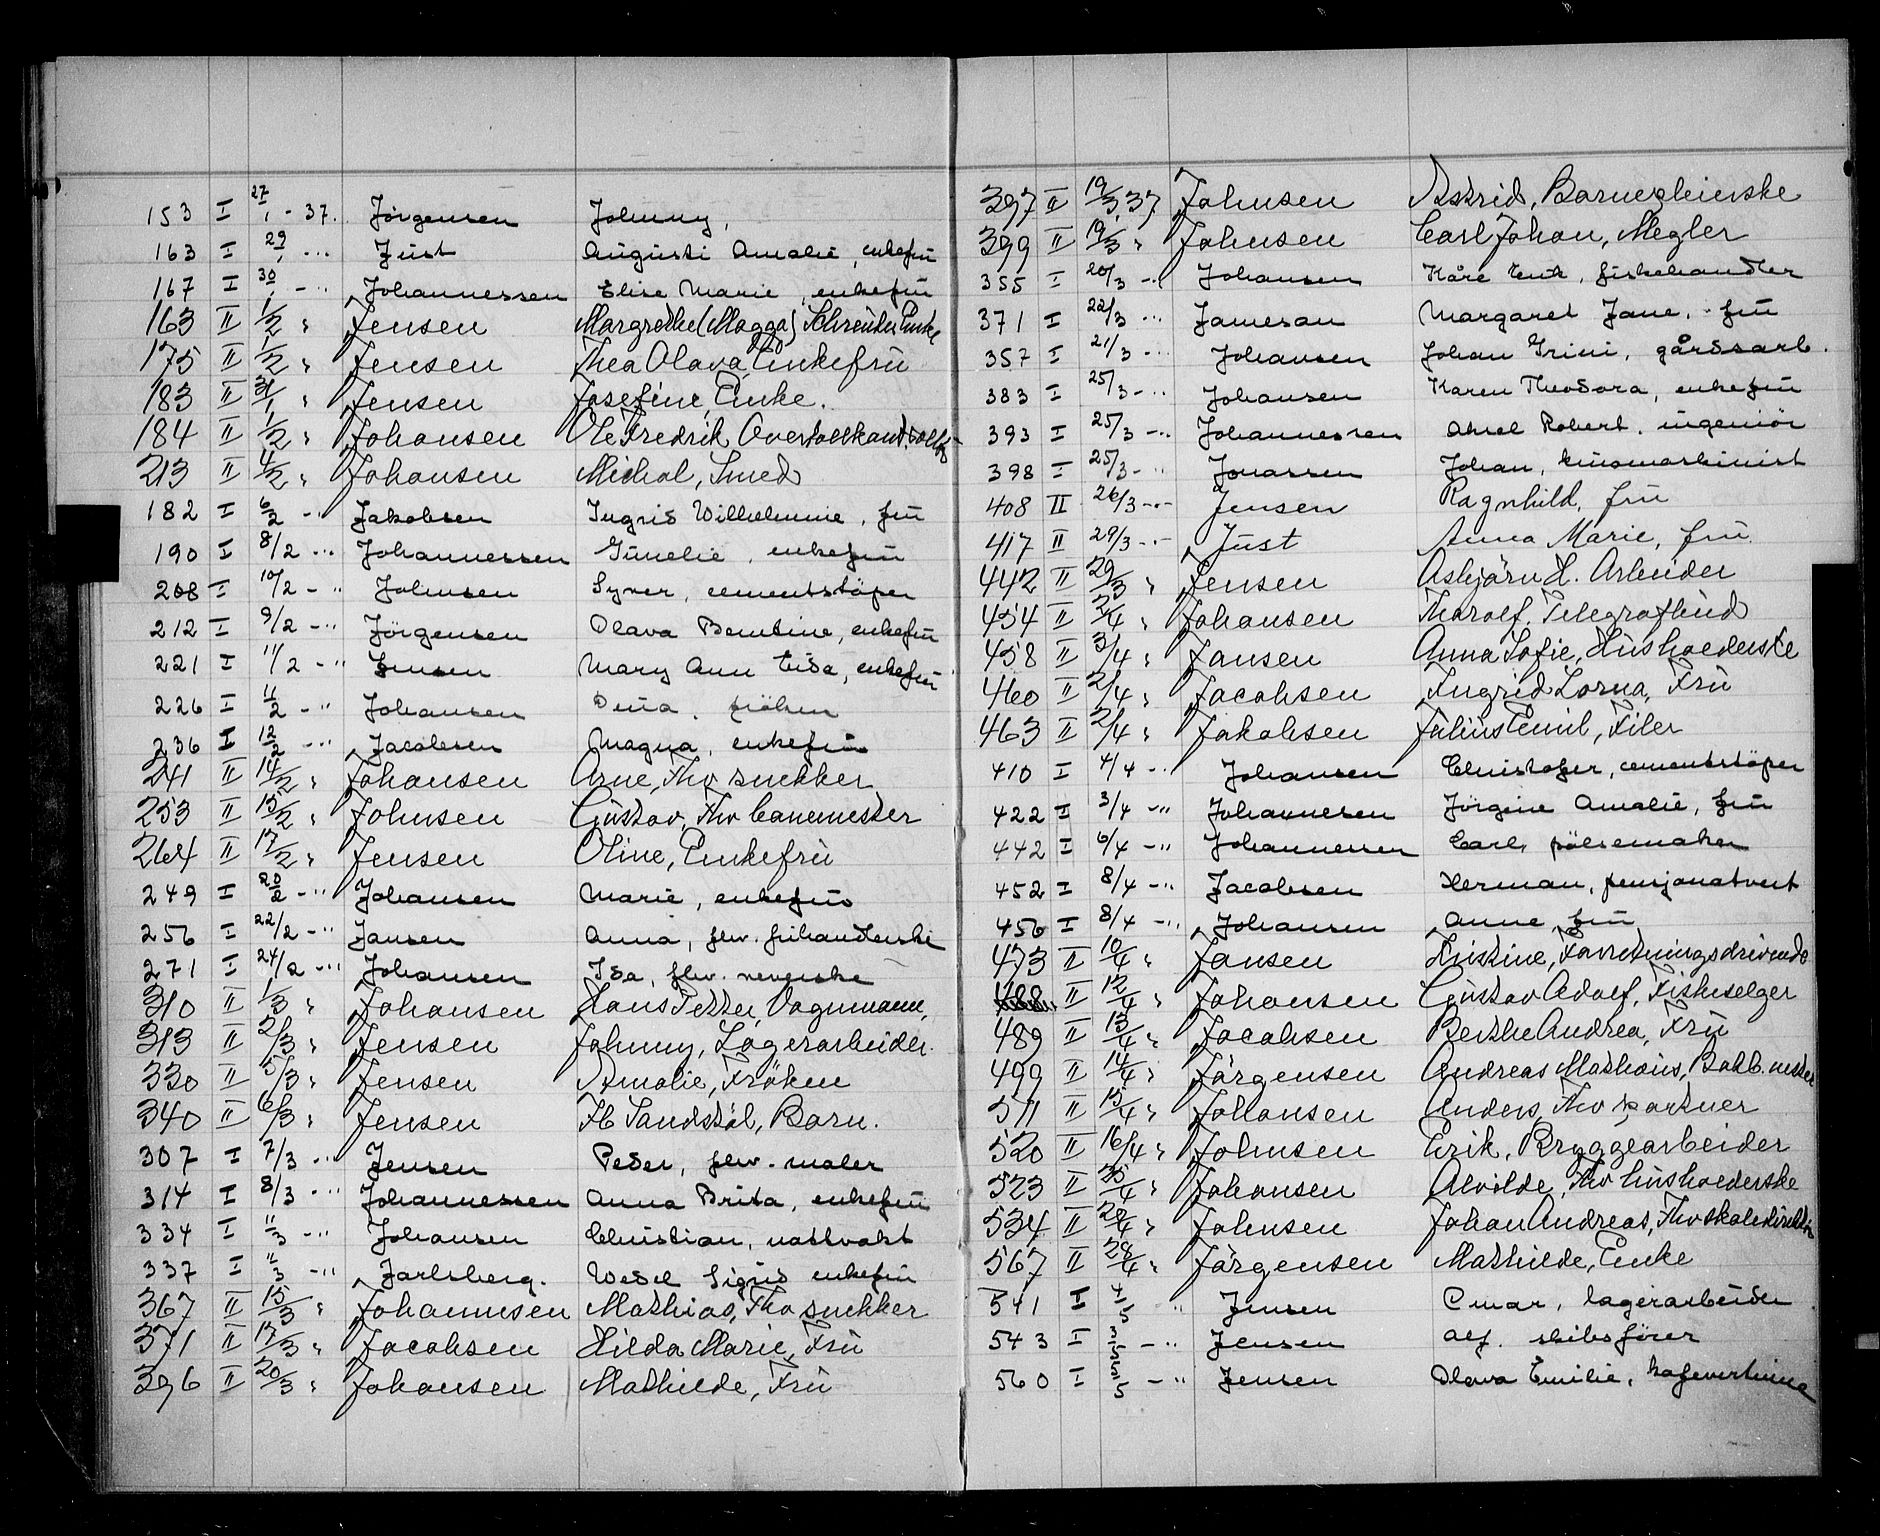 153 I 27/1 - 37. Jörgensen Johnny,
163 I 29/1 - " Just Augusti Amalie, enkefru
167 I 30/1 - " Johannessen Elise Marie, enkefru
163 II 1/2 " Jensen Margrethe (Magga) Schreuder Enke
175 II 1/2 " Jensen Thea Olava Enkefru
183 II 31/1 " Jensen Josefine, Enke.
184 II 1/2 " Johansen Ole Fredrik Overtollkontr.
213 II 4/2 " Johansen Michal, Smed
182 I 6/2 - " Jakobsen Ingrid Wilhelmine, fru
190 I 8/2 - " Johannessen Gunelie, enkefru
208 I 10/2 - " Johnsen Syver, cementstöper
212 I 9/2 - " Jörgensen Olava Bentine, enkefru
221 I 11/2 - " Jensen Mary Ann Eida, enkefru
226 I 11/2 - " Johansen Dina, fröken
236 I 12/2 - " Jacobsen Magna, enkefru
241 II 14/2 " Johansen Arne, Fhv snekker
253 II 15/2 " Johnsen Gustav, Fhv banemester
264 II 17/2 " Jensen Oline, Enkefru
249 I 20/2 - " Johansen Marie, enkefru
256 I 22/2 - " Jansen Anna, fhv. frihandlerske
271 I 24/2 - " Johansen Ida, fhv. veverske
310 II 1/3 " Johansen Hans Petter, Vognmann,
313 II 2/3 " Jensen Johnny, Lagerarbeider.
330 II 5/3 " Jensen Amalie, Fröken
340 II 6/3 " Jensen Fl. Sandstöl, Barn.
307 I 7/3 - " Jensen Peder, fhv. maler
314 I 8/3 - " Johannessen Anna Brita, enkefru
334 I 11/3 - " Johansen Christian, nattvakt
337 I 11/3 - " Jarlsberg. Wedel Sigrid enkefru
367 II 15/3 " Johannesen Mathias, Fhv snekker
371 II 17/3 " Jacobsen Hilda Marie, Fru
396 II 20/3 " Johansen Mathilde, Fru
397 II 19/3, 37 Johnsen Astrid, Barnepleierske
399 II 19/3 " Johnsen Carl Johan, Megler
355 I 20/3 - " Johansen Kåre Enk, fiskehandler
371 I 22/3 - " Jameson Margaret Jane, fru
357 I 21/3 - " Johansen Johan Grini, gårdsarb.
383 I 25/3 - " Johansen Karen Theodora, enkefru
393 I 25/3 - " Johannessen Aksel Robert. ingeniör
398 I 25/3 - " Jonassen Johan, kinomaskinist
408 II 26/3 - " Jensen Ragnhild, fru
417 II 29/3 - " Just Anna Marie, fru
442 II 29/3 " Jensen Asbjörn H. Arbeider
454 II 2/4 " Johansen Thorolf. Telegrafbud
458 II 3/4 " Jansen Anna Sofie, Husholderske
460 II 2/4 " Jacobsen Ingrid Lorna, Fru
463 II 2/4 " Jakobsen Julius Emil, Filer
410 I 4/4 - " Johansen Christofer, cementstöper
422 I 3/4 - " Johannesen Jörgine Amalie, fru
442 I 6/4 - " Johannessen Carl, pölsemaker
452 I 8/4 - " Jacobsen Herman, pensjonatvert
456 I 8/4 - " Johansen Anne, fru
473 II 10/4 " Jansen Kristine, Forretningsdrivende
488 II 12/4 " Johansen Gustav Adolf, Fiskeselger
489 II 13/4 " Jacobsen Berthe Andrea, Fru
499 II 14/4 " Jörgensen Andreas Mathæus, Bakermester
511 II 15/4 " Johansen Anders, Fhv gartner
520 II 16/4 " Johnsen Erik, Bryggearbeider
523 II 25/4 " Johansen Alvilde, Fhv husholderske
534 II 20/4 " Johnsen Johan Andreas, Fhv skoledirektör
567 II 28/4 " Jörgensen Mathilde, Enke
541 I 4/5 " Jensen Omar, lagerarbeider
543 I 3/5 - " Jensen Alf. skibsförer
560 I 5/5 - " Jensen Olava Emilie, kafevertinne